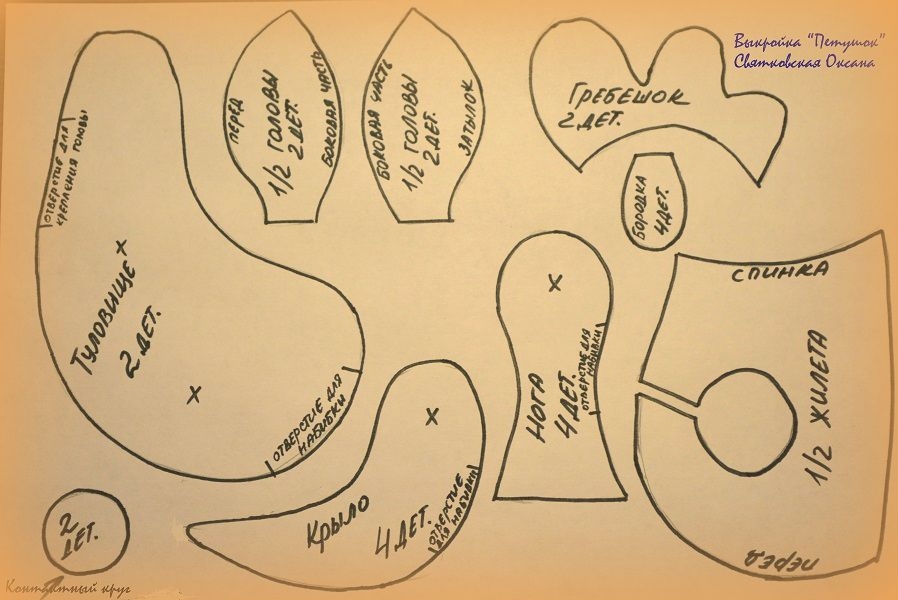 Выкройка "Петушок"
Святковская Оксана
ОТВЕРСТИЕ ДЛЯ
КРЕПЛЕНИЯ ГОЛОВЫ
ТУЛОВИЩЕ
2 ДЕТ.
ОТВЕРСТИЕ ДЛЯ
НАБИВКИ
ПЕРЕД
1/2 ГОЛОВЫ
2 ДЕТ.
БОКОВАЯ ЧАСТЬ
БОКОВАЯ ЧАСТЬ
1/2 ГОЛОВЫ
2 ДЕТ.
ЗАТЫЛОК
ГРЕБЕШОК
2 ДЕТ.
БОРОДКА
4 ДЕТ.
НОГА
4 ДЕТ.
ОТВЕРСТИЕ ДЛЯ
НАБИВКИ
СПИНКА
1/2 ЖИЛЕТА
ПЕРЕД
КРЫЛО
4 ДЕТ.
ОТВЕРСТИЕ
ДЛЯ НАБИВКИ
2
ДЕТ.
Контактный круг